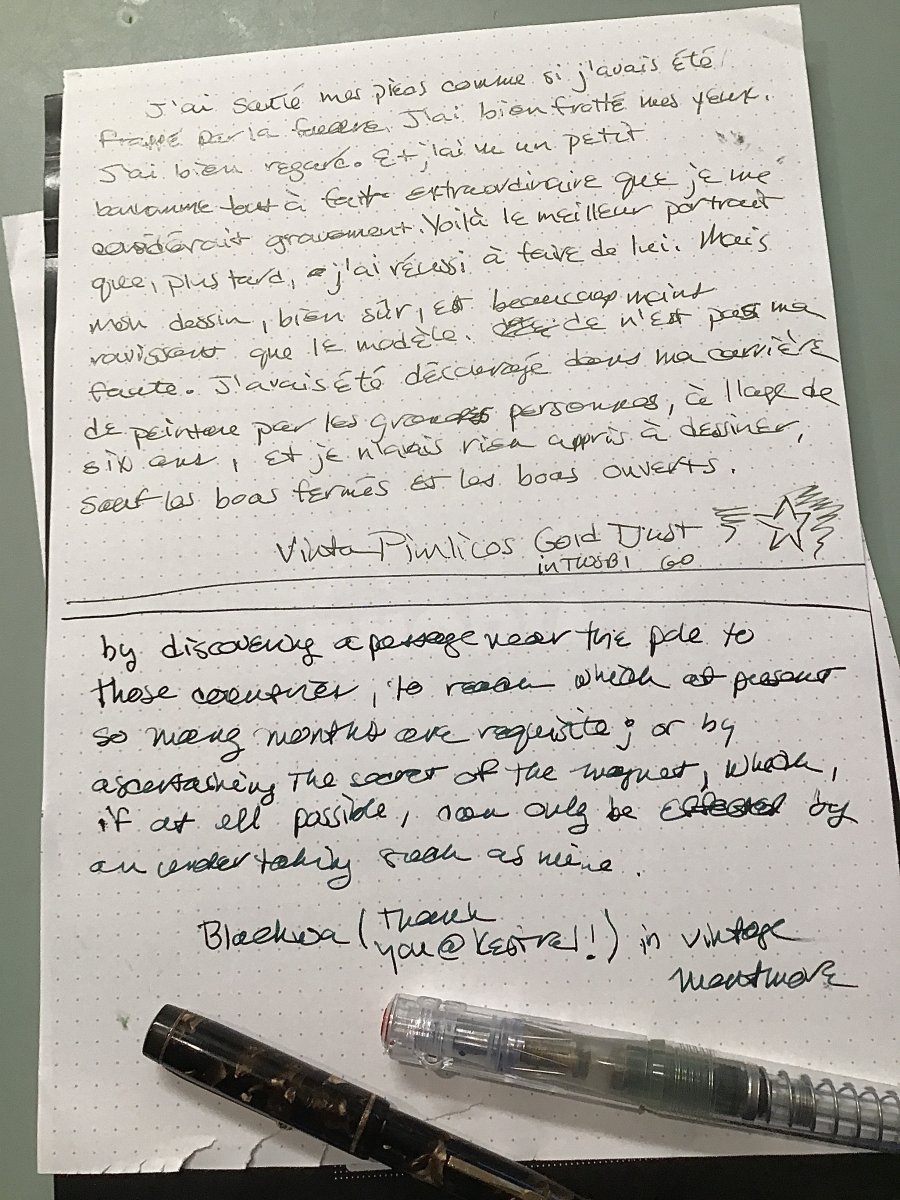 J'ai sauté mes pieds comme si j'avais été
frappé par la foudre. J'ai bien frotté mes yeux.
J'ai bien regardé. Et j'ai vu un petit
bonhomme tout à fait extraordinaire que je me
considérait gravement. Voilà le meilleur portrait
que, plus tard, j'ai réussi à faire de lui. Mais
mon dessin, bien sûr, est beaucoup moins
ravissant que le modèle. Ce n'est pas ma
faute. J'avais été découragé dans ma carrière
de peintre par les grandes personnes, à l'age de
six ans, et je n'avais rien appris à dessiner,
sauf les boas fermés et les boas ouverts.
Vinta Pimlicos Gold Dust
in TWSBI GO
by discovering a passage near the pole to
those countries, to reach which at present
so many months are requisite; or by
ascertaining the secret of the magnet, which,
if at all possible, can only be effected by
an undertaking such as mine.
Blackwa (Thank
you @Kestrel!) in vintage
Mentmore